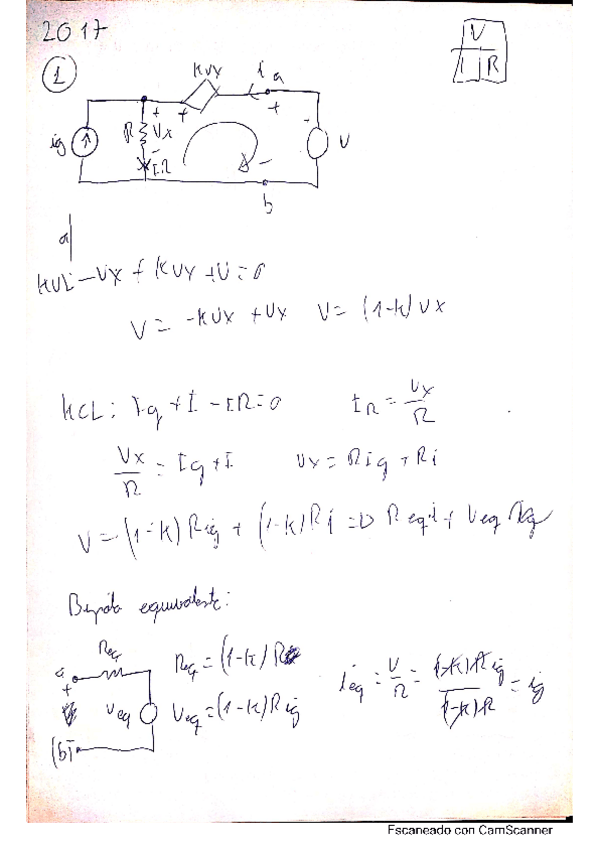 2017
V
I R
1
KVx i a
+ + +
ig R Vx - V
- IR -
b
a|
KVL -Vx + KVx + V = 0
V = -KVx + Vx V = (1-k) Vx
KCL: Ig + I - IR = 0 IR = Vx/R
Vx/R = Ig + I Vx = Rig + Ri
V = (1-k) Rig + (1-k) Ri => Req·i + Veq
Bipolo equivalente:
Req Req = (1-k) R ieq = V/R = (1-k)Rig/(1-k)R = ig
a
+
Veq Veq = (1-k) Rig
(b) -
Escaneado con CamScanner